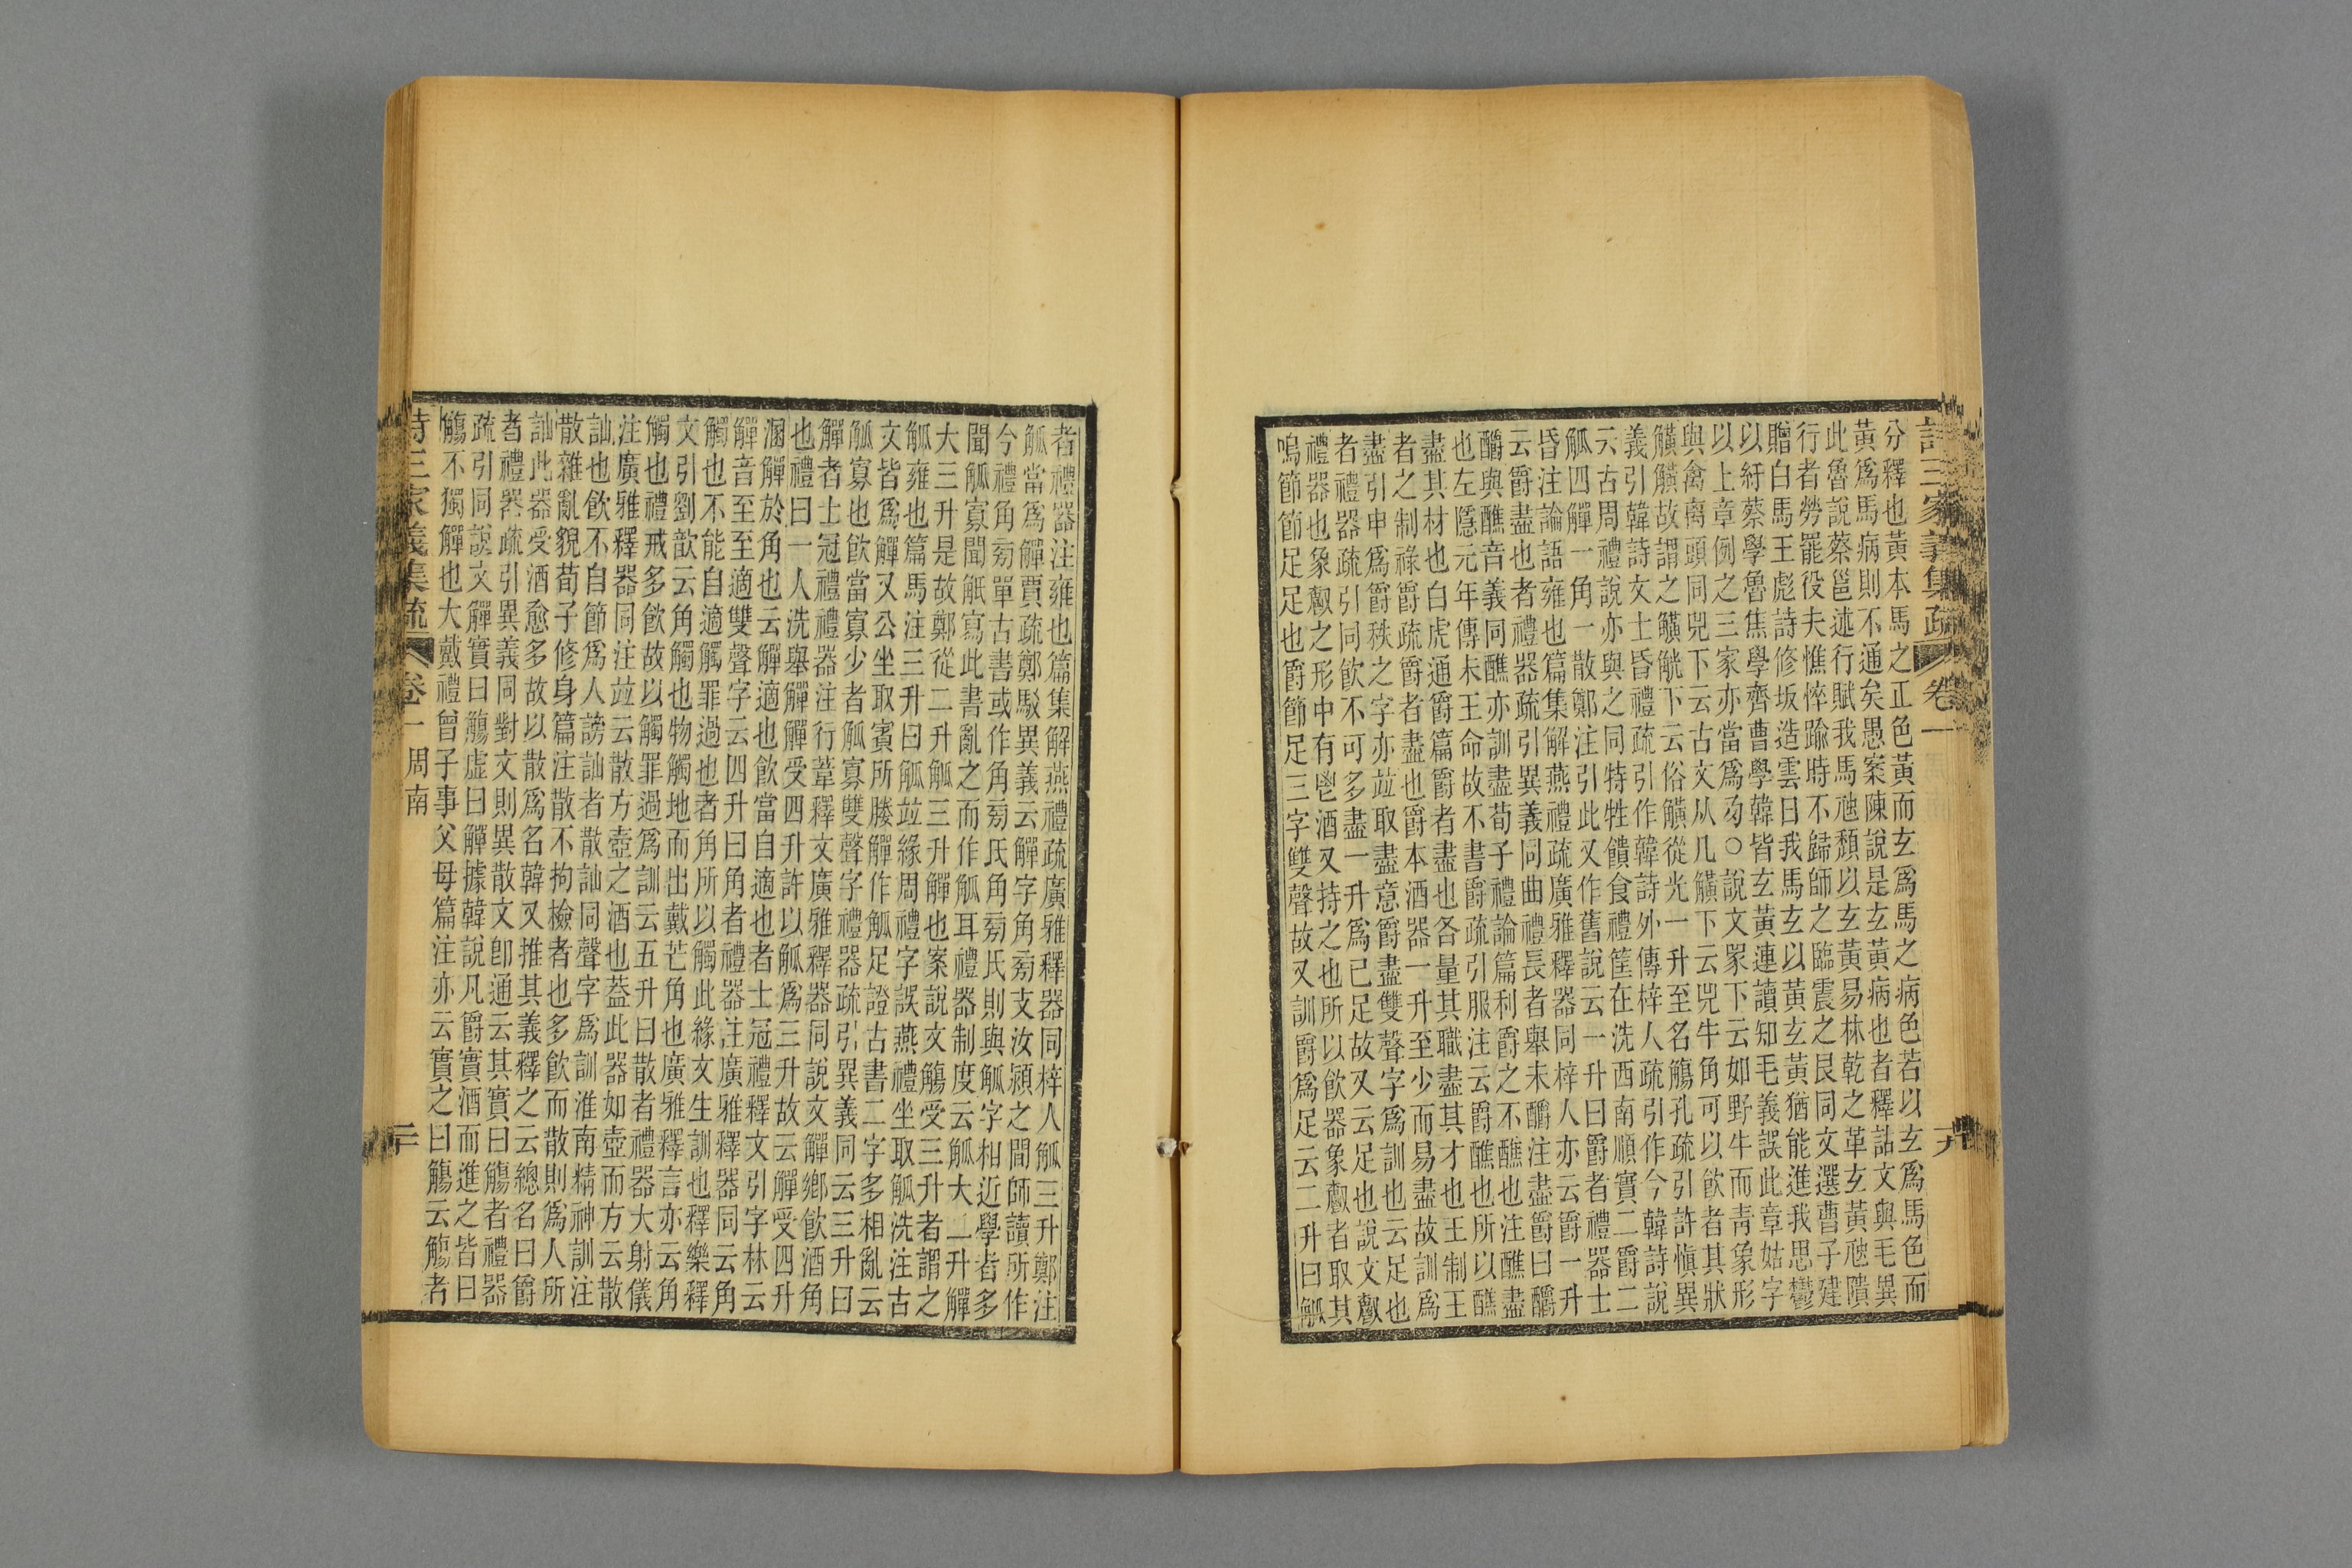 詩三家義集疏 卷一 十九
分釋也黃本馬之正色黃而玄爲馬之病色若以玄爲馬色而
黃爲馬病則不通矣愚案陳說是玄黃病也者釋詁文與毛異
此魯說蔡邕述行賦我馬虺頹以玄黃易林乾之革玄黃虺隤
行者勞罷役夫憔悴踰時不歸師之臨震之艮同文選曹子建
贈白馬王彪詩修坂造雲日我馬玄以黃玄黃猶能進我思鬱
以紆蔡學魯焦學齊曹學韓皆玄黃連讀知毛義誤此章姑字
以上章例之三家亦當爲夃○說文𤉡下云如野牛而青象形
與禽离頭同兕下云古文从几觵下云兕牛角可以飲者其狀
觵觵故謂之觵觥下云俗觵從光一升至名觴孔疏引許愼異
義引韓詩文士昏禮疏引作韓詩外傳梓人疏引作今韓詩說
天古周禮說亦與之同特牲饋食禮筐在洗西南順實二爵二
觚四觶一角一散鄭注引此又作舊說云一升曰爵者禮器士
昏注論語雍也篇集解燕禮疏廣雅釋器同梓人亦云爵一升
云爵盡也者禮器疏引異義同曲禮長者舉未釂注盡爵曰釂
釂與醮音義同醮亦訓盡荀子禮論篇利爵之不醮也注醮盡
也左隱元年傳未王命故不書爵疏引服注云爵醮也所以醮
盡其材也白虎通爵篇爵者盡也各量其職盡其才也王制王
者之制祿爵疏爵者盡也爵本酒器一升至少而易盡故訓爲
盡引申爲爵秩之字亦竝取盡意爵盡雙聲字爲訓也云足也
者禮器疏引同飲不可多盡一升爲已足故又云足也說文𩰥
禮器也象𩰥之形中有鬯酒又持之也所以飲器象𩰥者取其
鳴節節足足也爵節足三字雙聲故又訓爵爲足云二升曰觚
者禮器注雍也篇集解燕禮疏廣雅釋器同梓人觚三升鄭注
觚當爲觶賈疏鄭駁異義云觶字角𣃟支汝潁之間師讀所作
今禮角𣃟單古書或作角𣃟氏角𣃟氏則與觚字相近學者多
聞觚寡聞觗寫此書亂之而作觚耳禮器制度云觚大二升觶
大三升是故鄭從二升觚三升觶也案說文觴受三升者謂之
觚雍也篇馬注三升曰觚竝緣周禮字誤燕禮坐取觚洗注古
文皆爲觶又公坐取賓所媵觶作觚足證古書二字多相亂云
觚寡也飲當寡少者觚寡雙聲字禮器疏引異義同云三升曰
觶者士冠禮禮器注行葦釋文廣雅釋器同說文觶鄉飲酒角
也禮曰一人洗舉觶觶受四升許以觚爲三升故云觶受四升
溷觶於角也云觶適也飲當自適也者士冠禮釋文引字林云
觶音至至適雙聲字云四升曰角者禮器注廣雅釋器同云角
觸也不能自適觸罪過也者角所以觸此緣文生訓也釋樂釋
文引劉歆云角觸也物觸地而出戴芒角也廣雅釋言亦云角
觸也禮戒多飲故以觸罪過爲訓云五升曰散者禮器大射儀
注廣雅釋器同注竝云散方壺之酒也葢此器如壺而方云散
訕也飲不自節爲人謗訕者散訕同聲字爲訓淮南精神訓注
散雜亂貌荀子修身篇注散不拘檢者也多飲而散則爲人所
訕此器受酒愈多故以散爲名韓又推其義釋之云總名曰爵
者禮器疏引異義同對文則異散文卽通云其實曰觴者禮器
疏引同說文觶實曰觴虛曰觶據韓說凡爵實酒而進之皆曰
觴不獨觶也大戴禮曾子事父母篇注亦云實之曰觴云觴者
詩三家義集疏 卷一 周南 二十